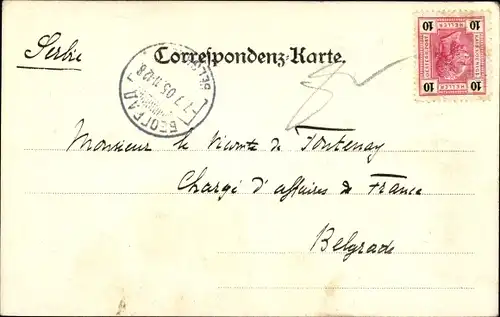 Serbie
Correspondenz-Karte.
10 10
HELLER HELLER
10 10
БЕОГРАД
7 7 05
Monsieur le Vicomte de Fontenay
Chargé d'affaires de France
Belgrade